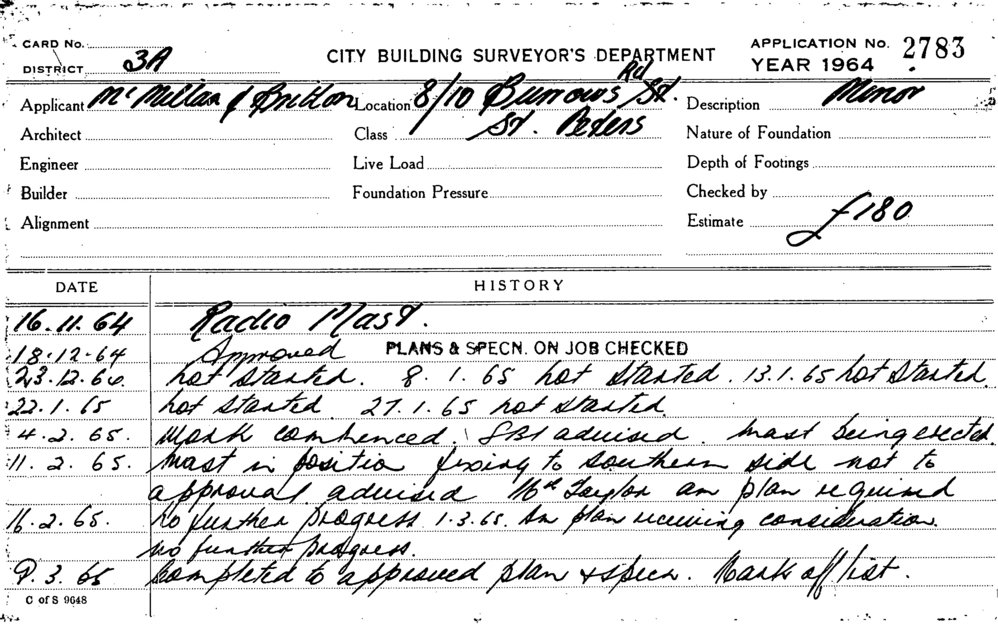 CARD No. CITY BUILDING SURVEYOR'S DEPARTMENT APPLICATION No. 2783
DISTRICT 3A YEAR 1964
Applicant Mc Millan & Britton Location 8/10 Burrows Rd St. Description Minor
Architect Class St. Peters Nature of Foundation
Engineer Live Load Depth of Footings
Builder Foundation Pressure Checked by
Alignment Estimate £180
DATE HISTORY
16.11.64 Radio Mast.
18.12.64 Approved PLANS & SPECN. ON JOB CHECKED
23.12.64 not started. 8.1.65 not started. 13.1.65 not started.
22.1.65 not started 27.1.65 not started.
4.2.65. Work commenced. advised. mast being erected.
11.2.65. mast in position fixing to southern side not to
approval advised Mr Taylor am plan required
16.2.65. no further progress 1.3.65. Am plan receiving consideration.
no further progress.
9.3.65 Completed to approved plan & specn. Mark off list.
C of S 9648